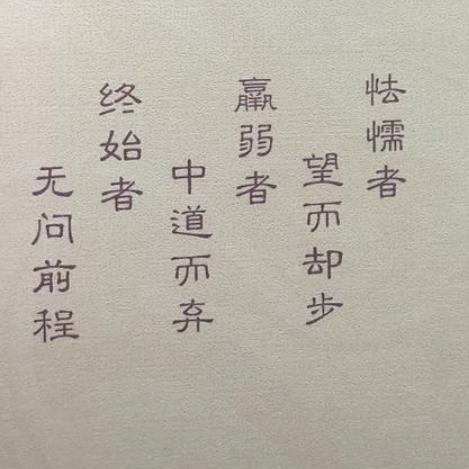 怯懦者
望而却步
羸弱者
中道而弃
终始者
无问前程